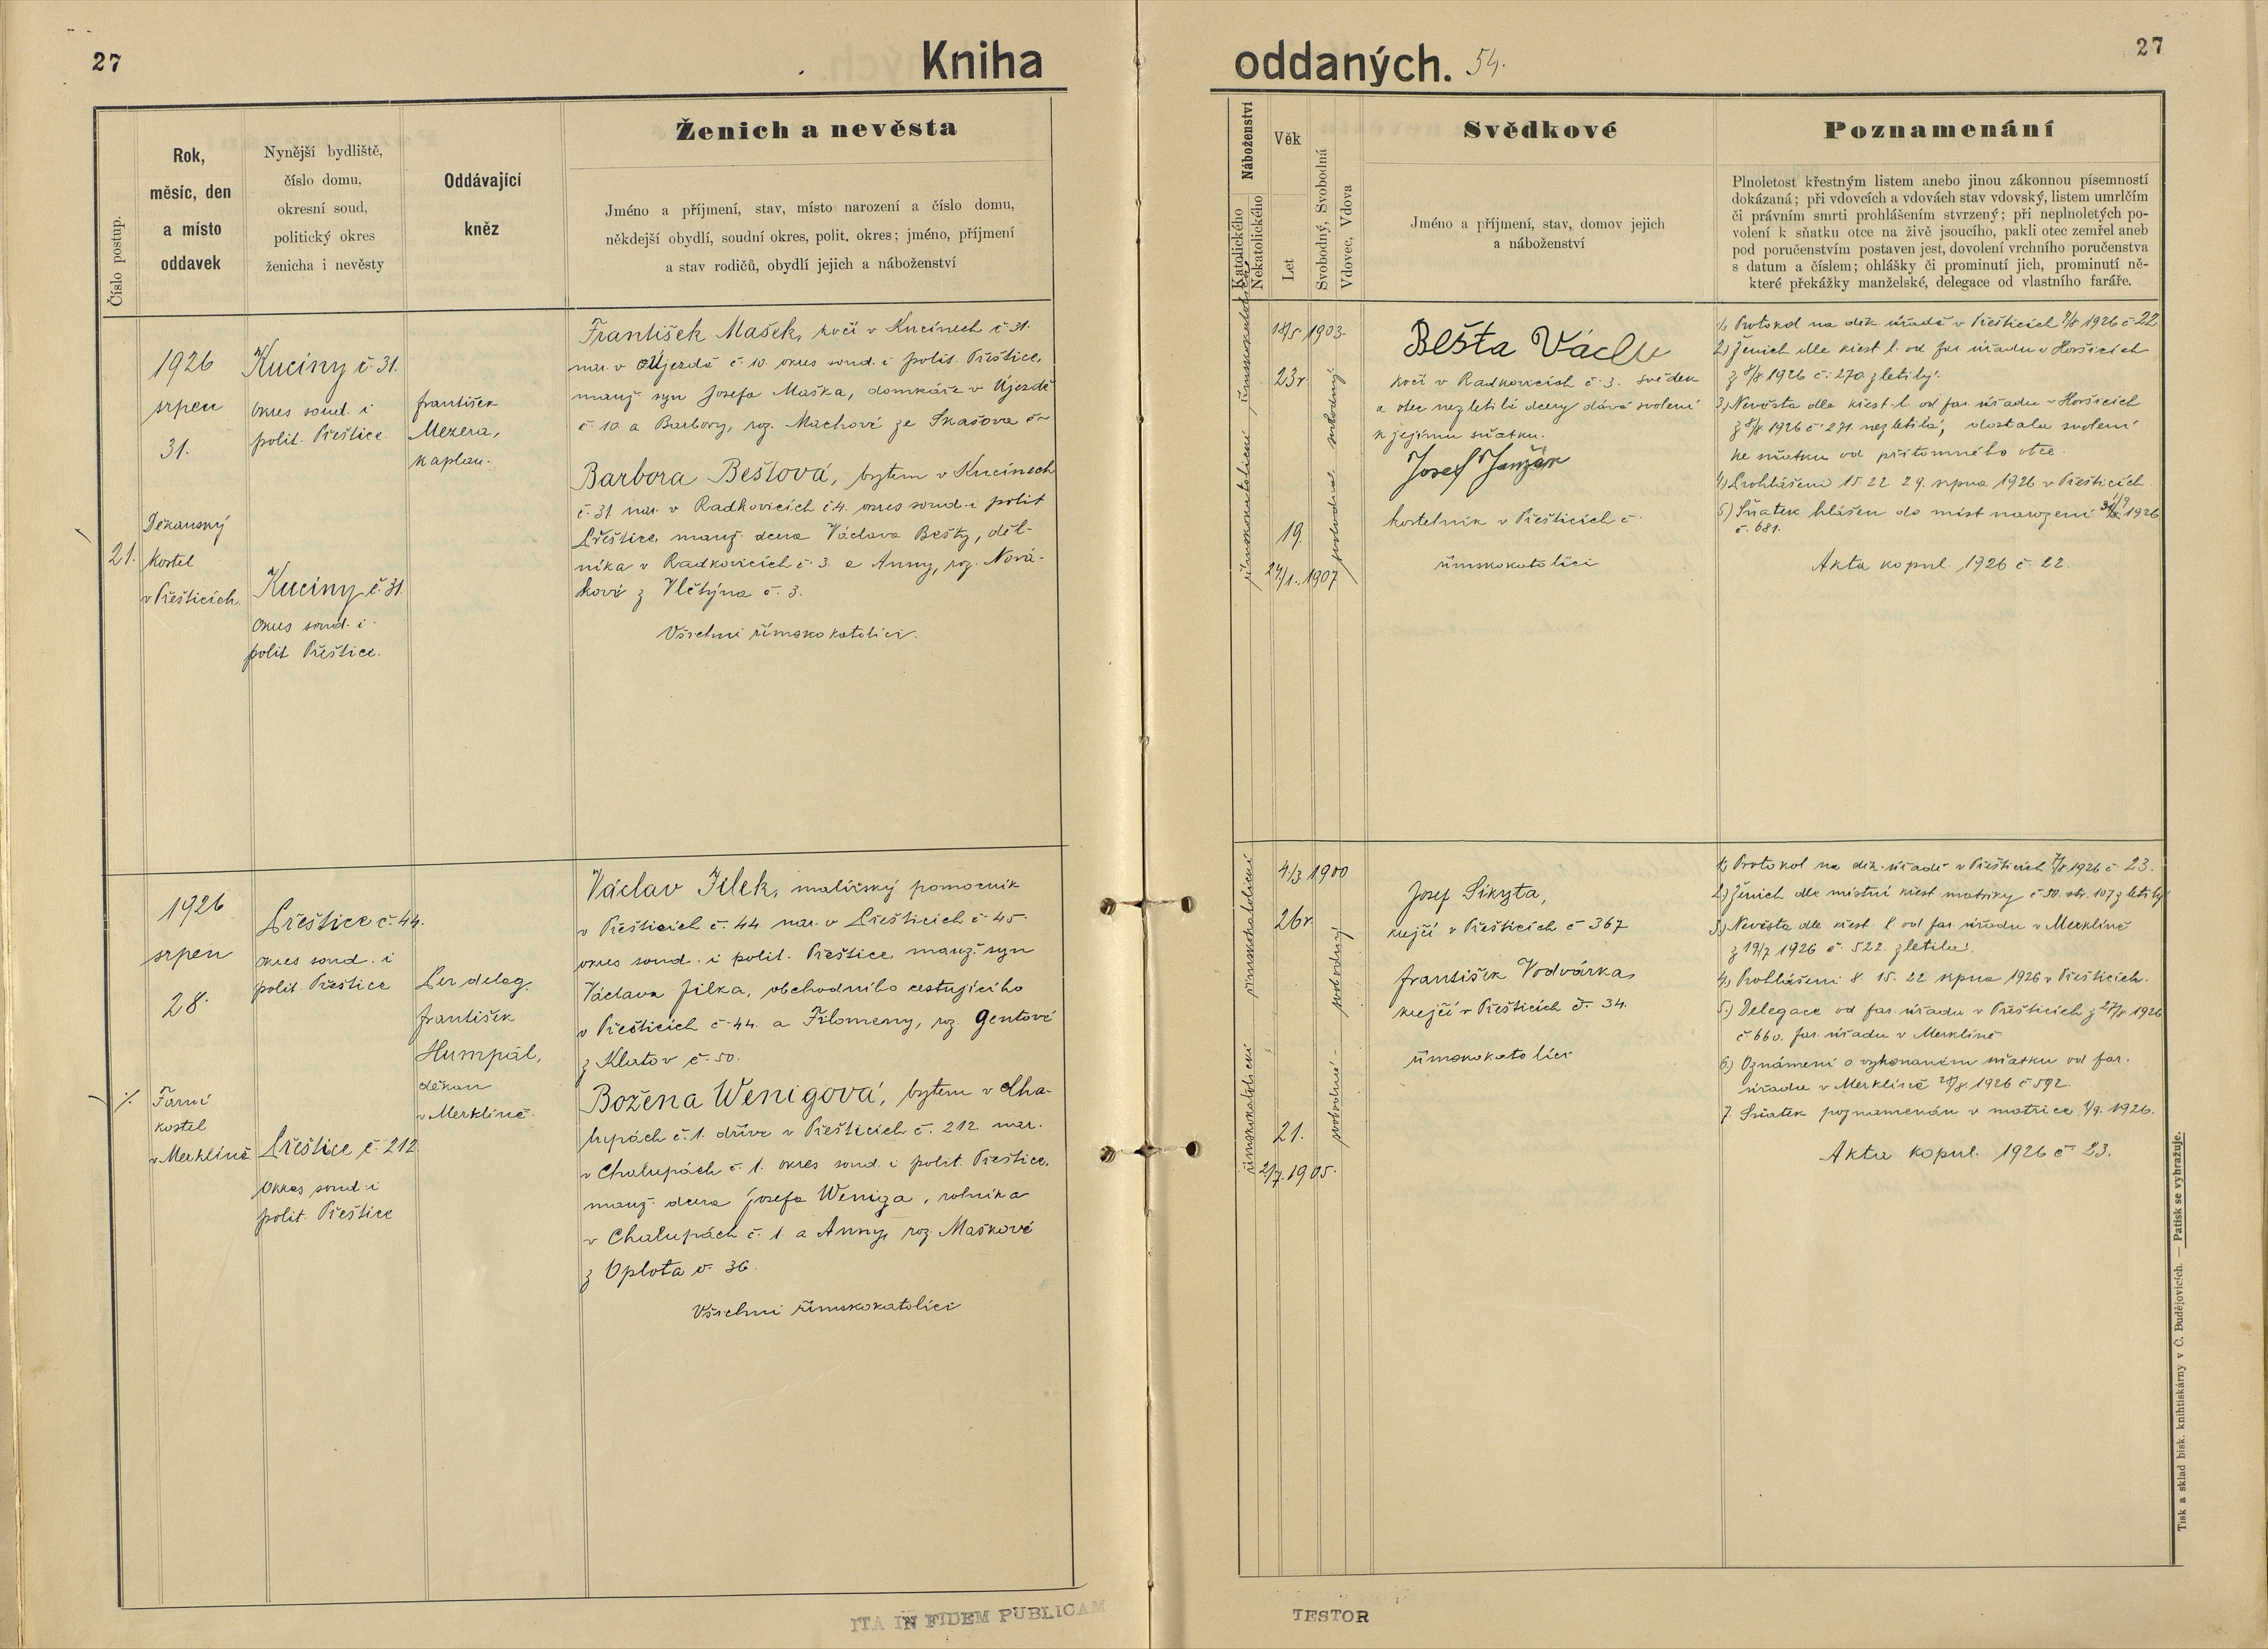 27
Kniha
oddaných. 54.
27
Číslo postup.
Rok,
měsíc, den
a místo
oddavek
Nynější bydliště,
číslo domu,
okresní soud,
politický okres
ženicha i nevěsty
Oddávající
kněz
Ženich a nevěsta
Jméno a příjmení, stav, místo narození a číslo domu,
někdejší obydlí, soudní okres, polit. okres; jméno, příjmení
a stav rodičů, obydlí jejich a náboženství
Náboženství
Katolického
Nekatolického
Věk
Let
Svobodný, Svobodná
Vdovec, Vdova
Svědkové
Jméno a příjmení, stav, domov jejich
a náboženství
Poznamenání
Plnoletost křestným listem anebo jinou zákonnou písemností
dokázaná; při vdovcích a vdovách stav vdovský, listem umrlčím
či právním smrti prohlášením stvrzený; při neplnoletých po-
volení k sňatku otce na živě jsoucího, pakli otec zemřel aneb
pod poručenstvím postaven jest, dovolení vrchního poručenstva
s datum a číslem; ohlášky či prominutí jich, prominutí ně-
které překážky manželské, delegace od vlastního faráře.
21.
1926
srpen
31.
Děkanský
kostel
v Přešticích
Kucíny č. 31.
okres soud. i
polit. Přeštice.
Kucíny č. 31.
okres soud. i
polit Přeštice.
František
Mezera,
kaplan.
František Mašek, kočí v Kucínech č 31.
nar. v Újezdě č. 10. okres soud. i polit. Přeštice,
manž. syn Josefa Maška, domkáře v Újezdě
č. 10 a Barbory, roz. Machové ze Skašova č
Barbora Beštová, bytem v Kucínech
č. 31 nar. v Radkovicích č 4. okres soud. i polit
Přeštice, manž. dcera Václava Bešty, děl-
níka v Radkovicích č. 3. a Anny, roz. Nová-
kové z Vlčtýna č. 3.
Všichni římskokatolíci.
římskokatolické
římskokatolické
18/5 1903.
23 r.
19.
24/1. 1907
svobodný
svobodná
Bešta Václav
kočí v Radkovicích č. 3. svědek
a otec nezletilé dcery dává svolení
k jejímu sňatku.
Josef Janžák
kostelník v Přešticích č.
římskokatolíci
1) Protokol na děk. úřadě v Přešticích 9/8 1926 č 22
2) Ženich dle křest l. od far. úřadu v Horšicích
z 8/8 1926 č. 270. zletilý.
3) Nevěsta dle křest. l. od far. úřadu v Horšicích
z 8/8 1926 č. 271. nezletilá, dostala svolení
ke sňatku od přítomného otce.
4) Prohlášení 15. 22 29. srpna 1926 v Přešticích.
5) Sňatek hlášen do míst narození 1/9 1926
č. 681.
Akta kopul. 1926 č. 22.
1926
srpen
28.
Farní
kostel
v Merklíně
Přeštice č. 44.
okres soud. i
polit. Přeštice
Přeštice č. 212.
Okres soud. i
polit. Přeštice
Per deleg.
František
Humpál,
děkan
v Merklíně.
Václav Jílek, malířský pomocník
v Přešticích č. 44 nar. v Přešticích č 45.
okres soud. i polit. Přeštice, manž. syn
Václava Jílka, obchodního cestujícího
v Přešticích č. 44. a Filomeny, roz. Gentové
z Klatov č. 50.
Božena Wenigová, bytem v Cha-
lupách č. 1. dříve v Přešticích č. 212 nar.
v Chalupách č. 1. okres soud. i polit. Přeštice,
manž. dcera Josefa Weniga, rolníka
v Chalupách č. 1. a Anny, roz. Maškové
z Oplota č. 36.
Všichni římskokatolíci
římskokatolické
římskokatolické
4/3 1900
26 r.
21.
2/7. 1905.
svobodný
svobodná
Josef Sikyta,
krejčí v Přešticích č 367
František Vodvárka,
krejčí v Přešticích č. 34.
římskokatolíci
1) Protokol na děk. úřadě v Přešticích 7/8 1926 č 23.
2) Ženich dle místní křest matriky č 50. str. 107 zletilý
3) Nevěsta dle křest. l. od far. úřadu v Merklíně
z 19/7 1926 č. 522. zletilá.
4) Prohlášení 8. 15. 22 srpna 1926 v Přešticích.
5.) Delegace od far. úřadu v Přešticích z 27/8 1926
č 660. far. úřadu v Merklíně
6.) Oznámení o vykonaném sňatku od far.
úřadu v Merklíně 28/8. 1926 č 592.
7. Sňatek poznamenán v matrice 1/9. 1926.
Akta kopul. 1926 č 23.
Tisk a sklad bisk. knihtiskárny v Č. Budějovicích. — Patisk se vyhražuje.
ITA IN FIDEM PUBLICAM
TESTOR